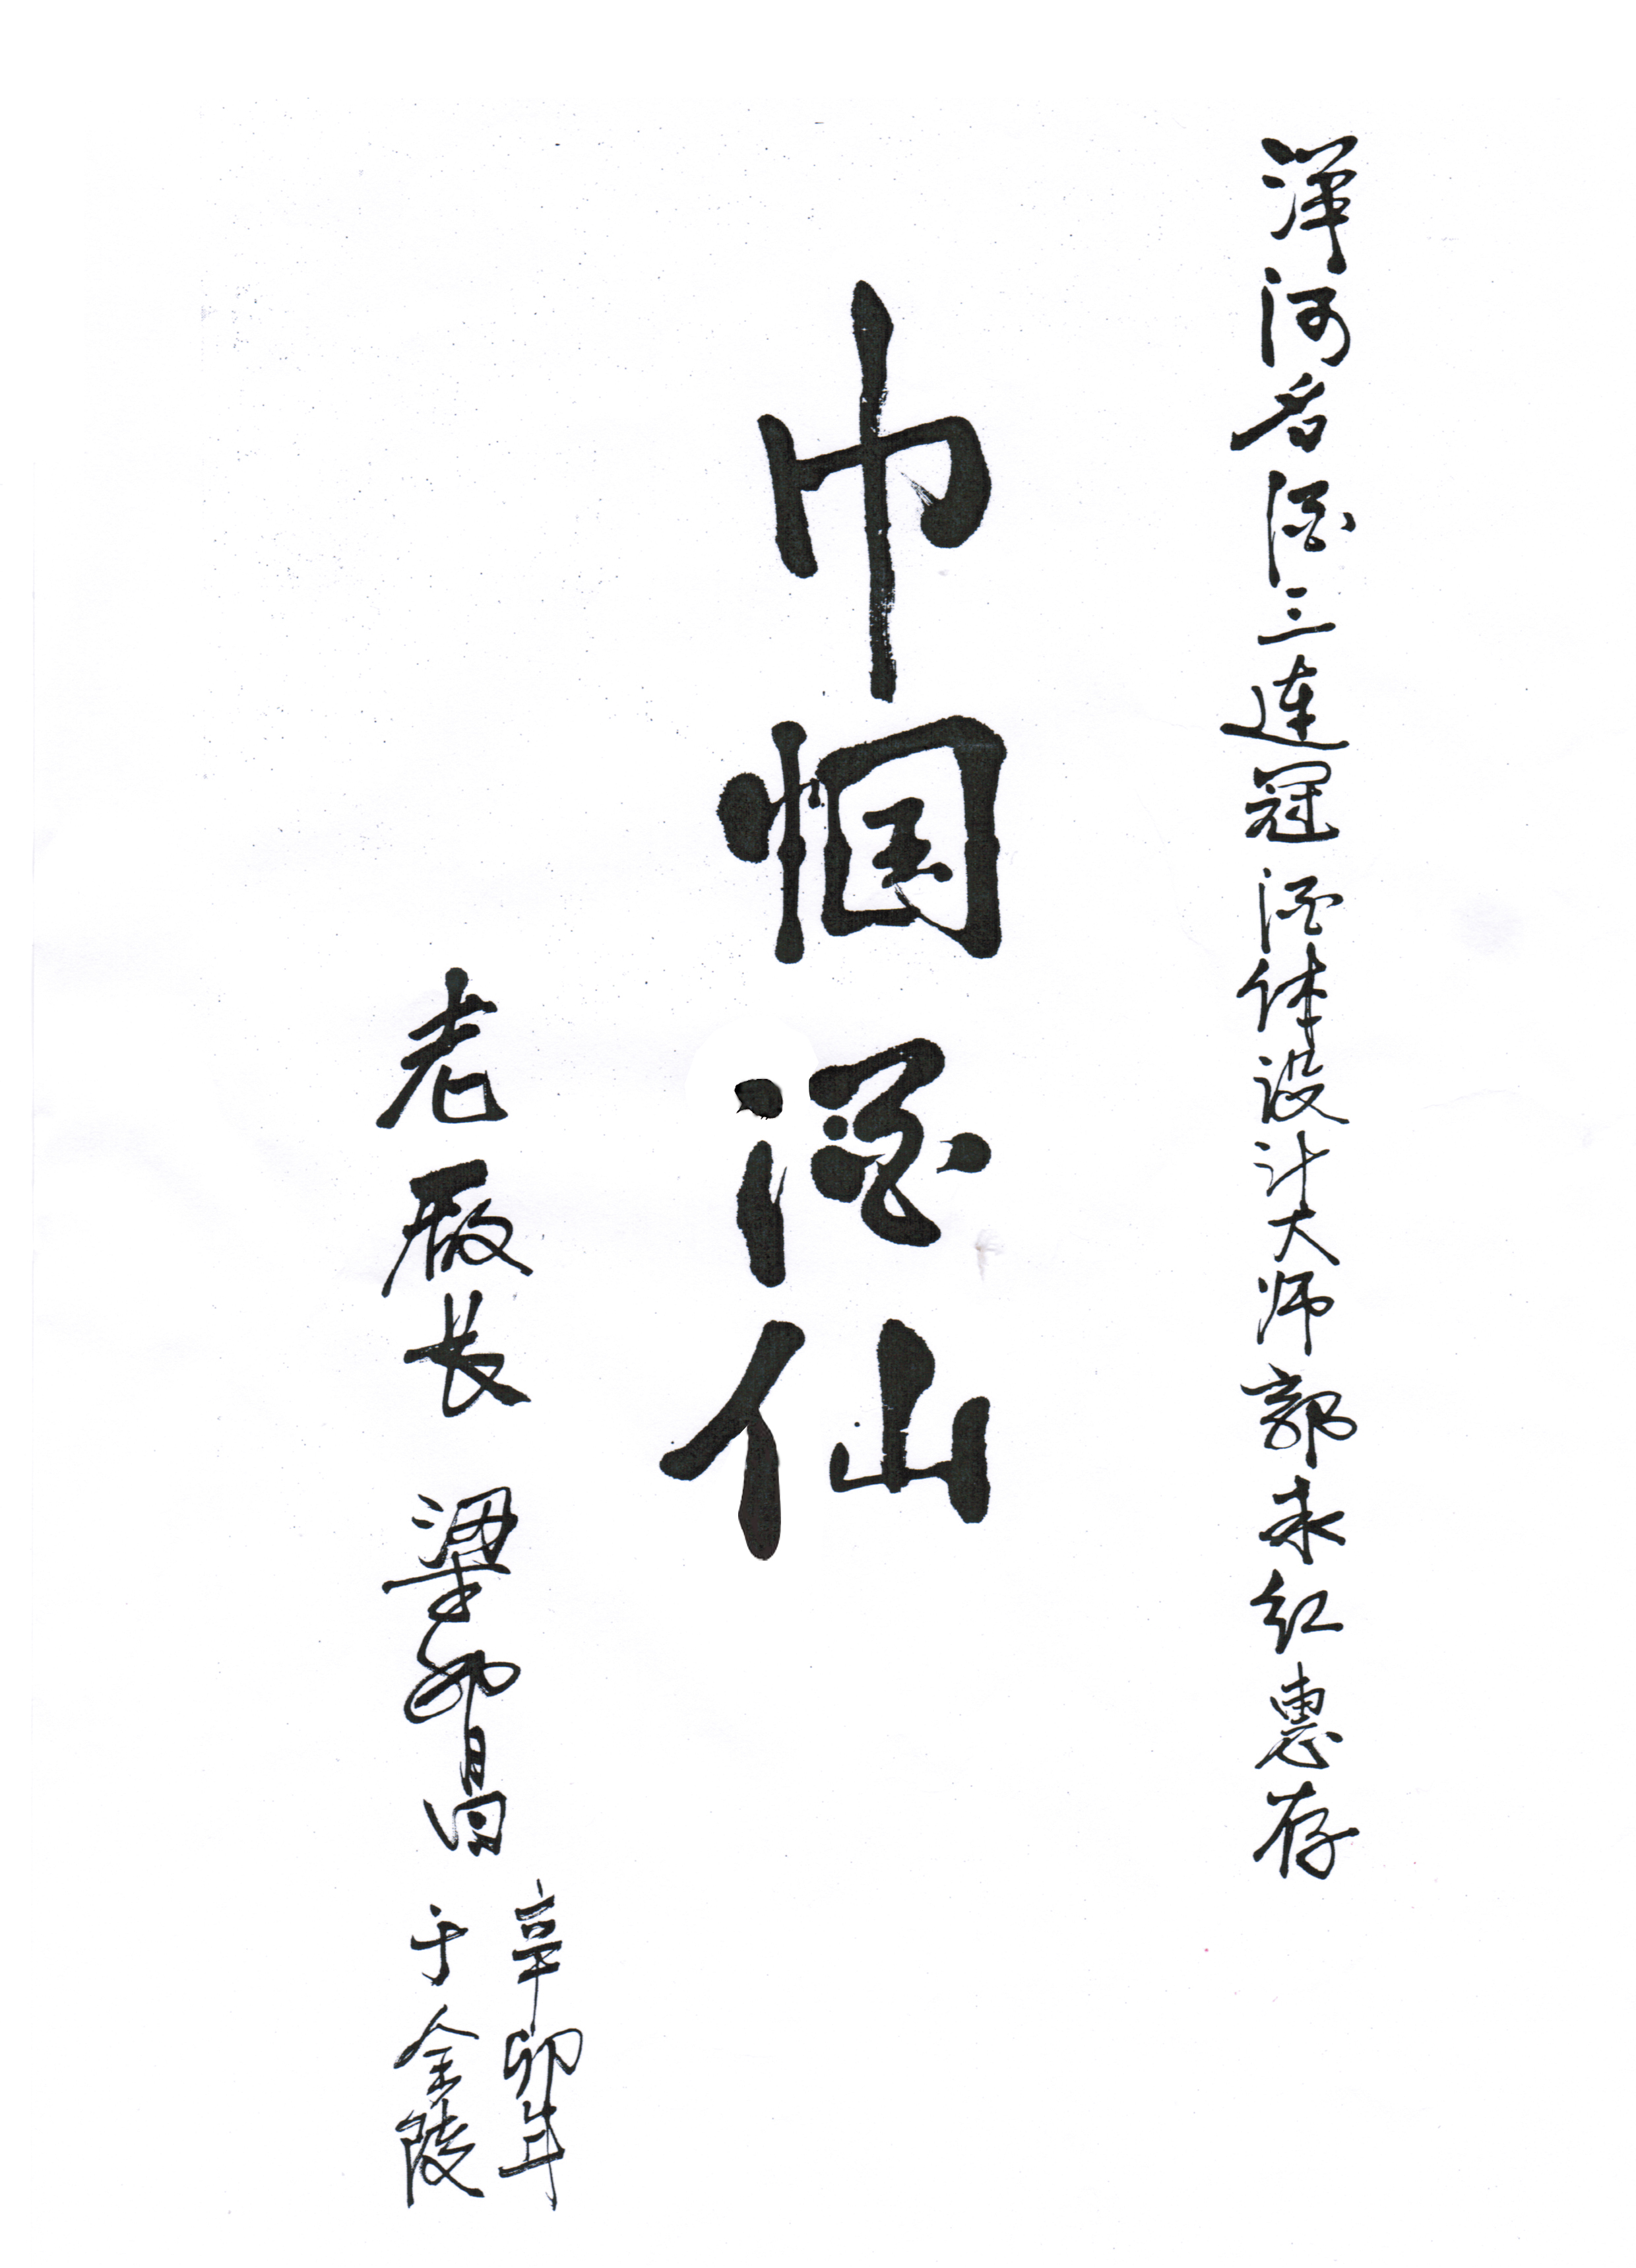 洋河名酒三连冠 酒体设计大师郭红惠存
巾帼酒仙
老厰长 梁邦昌
辛卯年
于金陵